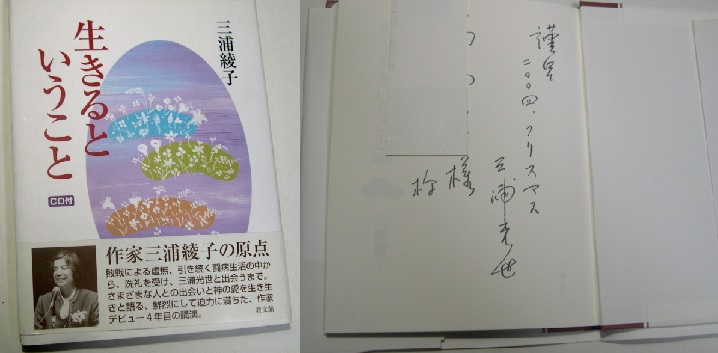 三浦綾子
生きると
いうこと
CD付
作家三浦綾子の原点
敗戦による虚無、引き続く闘病生活の中か
ら、洗礼を受け、三浦光世と出会うまで。
さまざまな人との出会いと神の愛を生き生
きと語る、鮮烈にして迫力に満ちた、作家
デビュー4年目の講演。
教文館
謹呈
二〇〇四、クリスマス
三浦光世
様